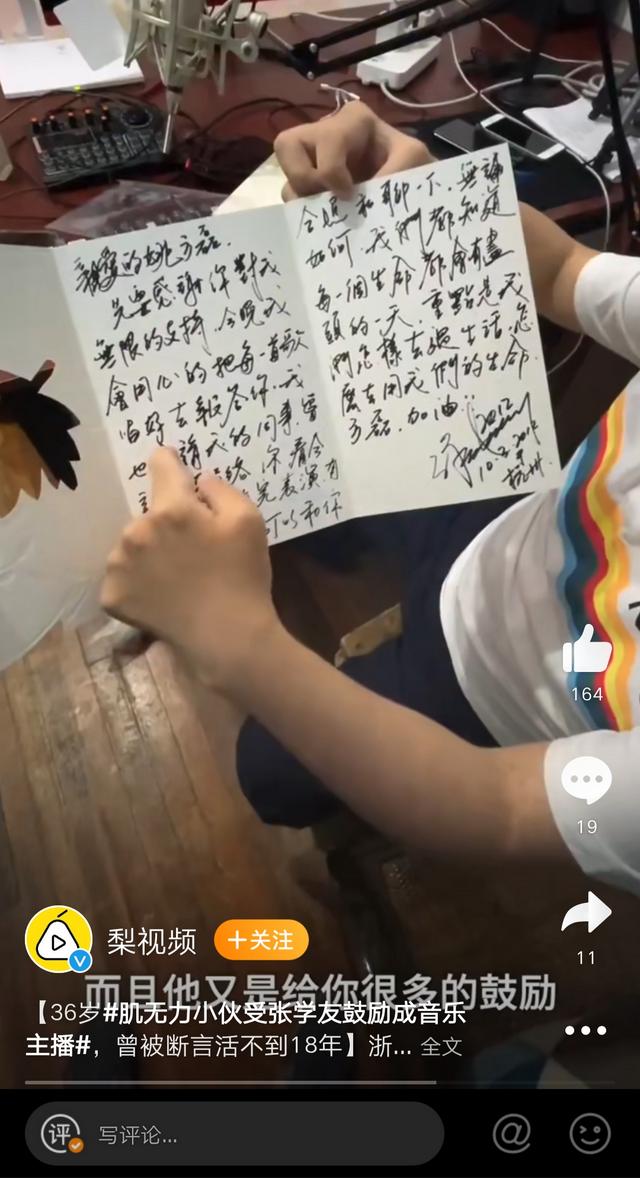 親愛的姚方磊.
先要感謝你對我
無限的支持.今晚我
會用心的把每一首歌
唱好去報答你.我
也 請我的同事.當
絡你看今
完表演.有
可以和你
合照和聊一下.無論
如何.我們都知道
每一個生命都會有盡
頭的一天.重點是我
們怎樣去過生活.怎
麼去用我們的生命.
方磊.加油!!
10.2.2012
杭州.
164
19
11
梨视频
+关注
而且他又是给你很多的鼓励
【36岁#肌无力小伙受张学友鼓励成音乐
主播#，曾被断言活不到18年】浙... 全文
评
写评论...
@